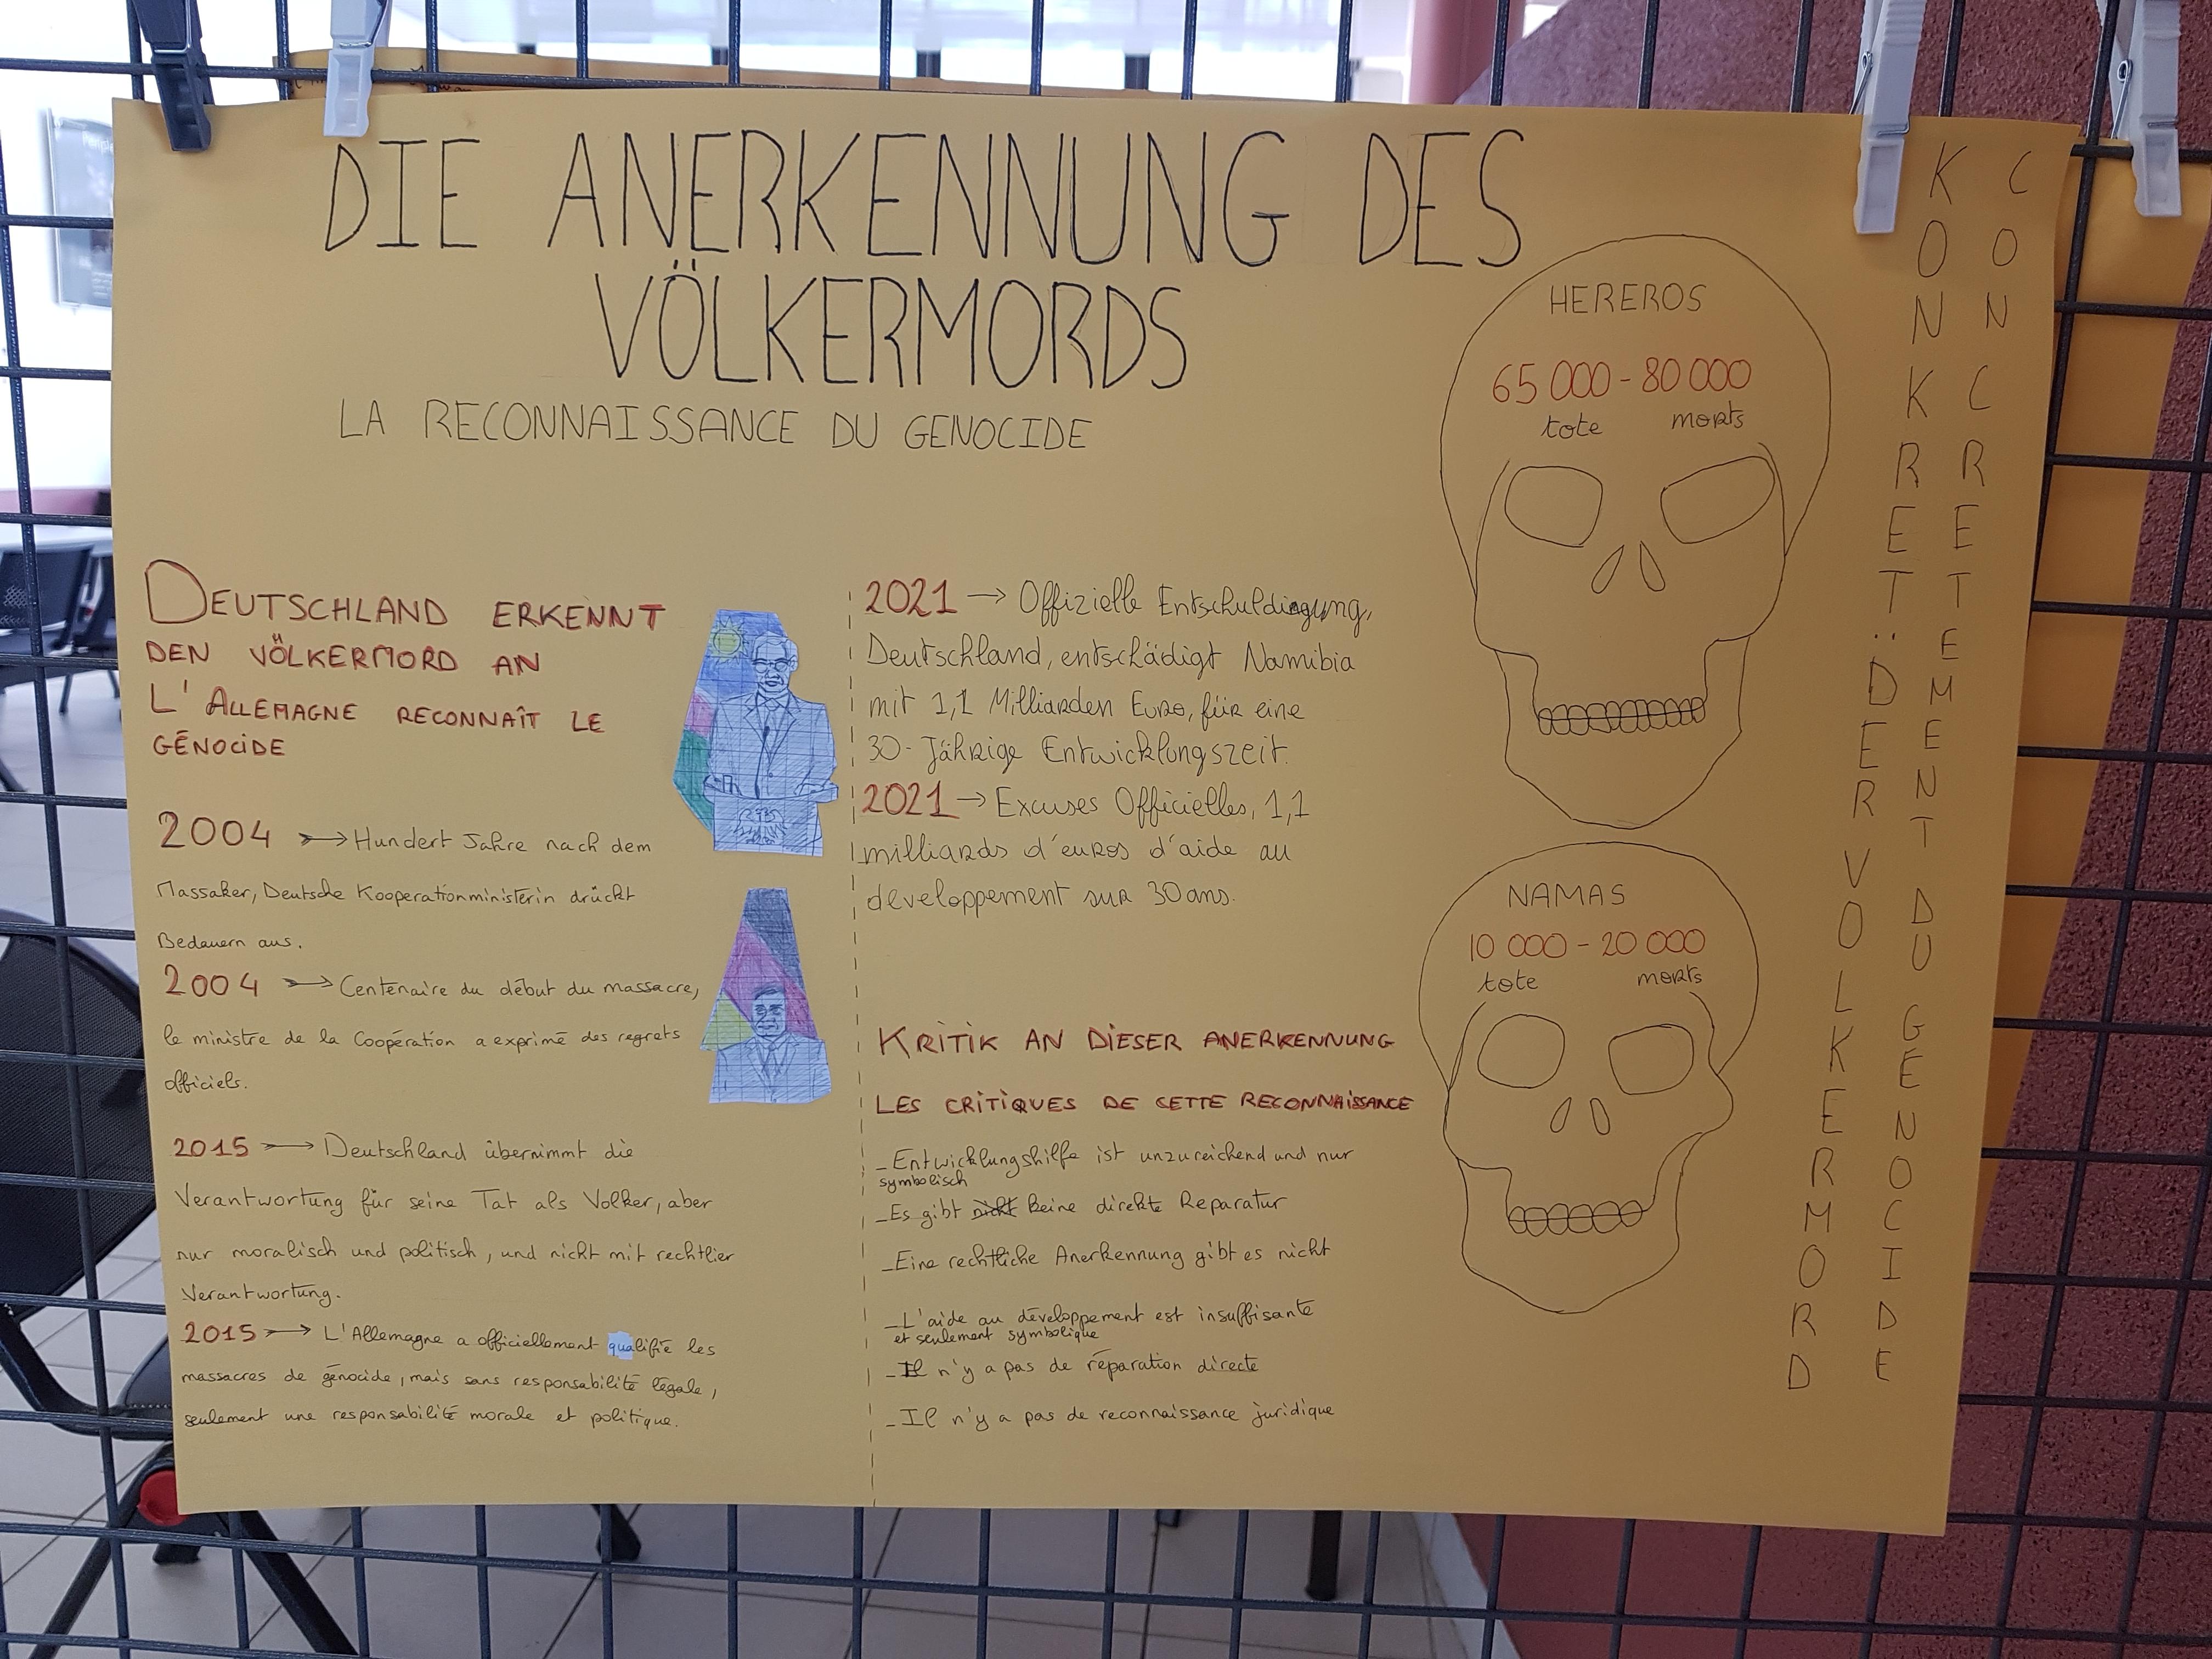 DIE ANERKENNUNG DES
VÖLKERMORDS
LA RECONNAISSANCE DU GENOCIDE
DEUTSCHLAND ERKENNT
DEN VÖLKERMORD AN
L'ALLEMAGNE RECONNAÎT LE
GÉNOCIDE
2004 → Hundert Jahre nach dem
Massaker, Deutsche Kooperationministerin drückt
Bedauern aus.
2004 → Centenaire du début du massacre,
le ministre de la Coopération a exprimé des regrets
officiels.
2015 → Deutschland übernimmt die
Verantwortung für seine Tat als Volker, aber
nur moralisch und politisch, und nicht mit rechtlier
Verantwortung.
2015 → L'Allemagne a officiellement qualifié les
massacres de génocide, mais sans responsabilité légale,
seulement une responsabilité morale et politique.
2021 → Offizielle
Deutschland, entschädigt Namibia
mit 1,1 Milliarden Euro, für eine
30-Jährige Entwicklungszeit.
2021 → Excuses Officielles, 1,1
milliards d'euros d'aide au
developpement sur 30 ans.
KRITIK AN DIESER ANERKENNUNG
LES CRITIQUES DE CETTE RECONNAISSANCE
- Entwicklungshilfe ist unzureichend und nur
symbolisch
- Es gibt nicht keine direkte Reparatur
- Eine rechtliche Anerkennung gibt es nicht
- L'aide au développement est insuffisante
et seulement symbolique
- Il n'y a pas de réparation directe
- Il n'y a pas de reconnaissance juridique
HEREROS
65 000 - 80 000
tote morts
NAMAS
10 000 - 20 000
tote morts
KONKRET: DER VOLKERMORD
CONCRETEMENT DU GENOCIDE